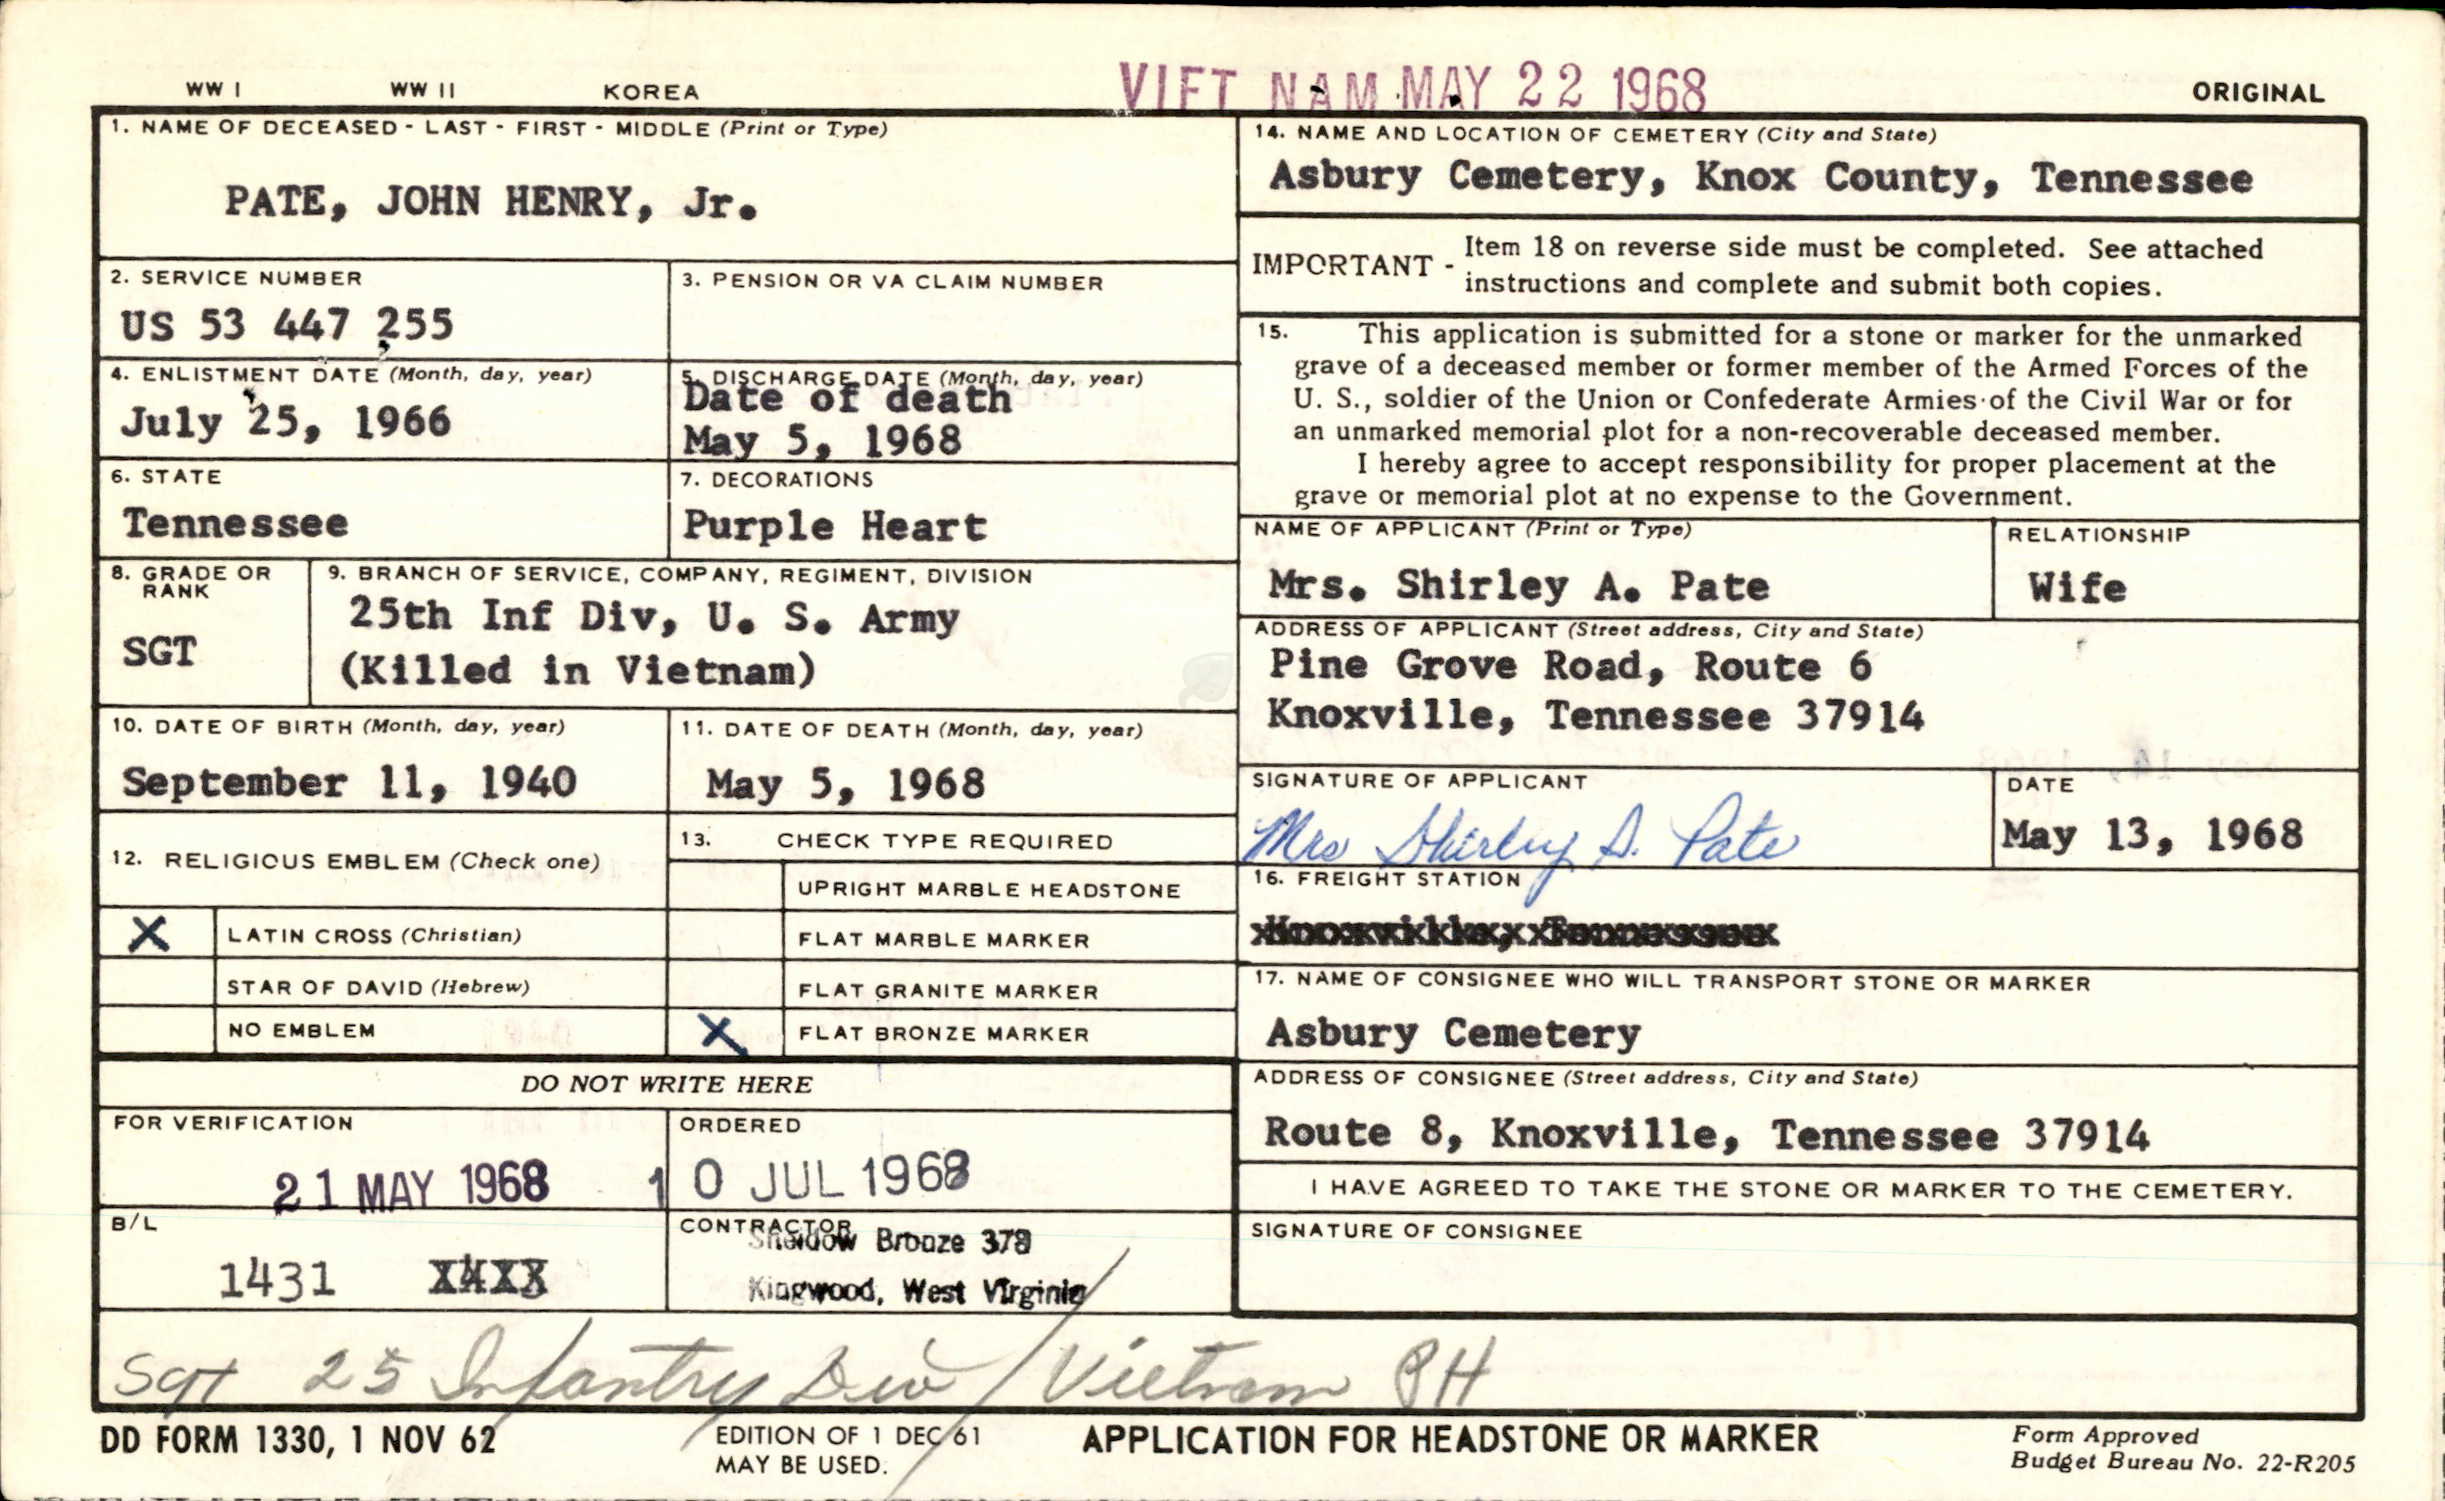 WW I WW II KOREA VIET NAM MAY 22 1968 ORIGINAL
1. NAME OF DECEASED - LAST - FIRST - MIDDLE (Print or Type)
PATE, JOHN HENRY, Jr.
2. SERVICE NUMBER
US 53 447 255
3. PENSION OR VA CLAIM NUMBER
4. ENLISTMENT DATE (Month, day, year)
July 25, 1966
5. DISCHARGE DATE (Month, day, year)
Date of death
May 5, 1968
6. STATE
Tennessee
7. DECORATIONS
Purple Heart
8. GRADE OR
RANK
SGT
9. BRANCH OF SERVICE, COMPANY, REGIMENT, DIVISION
25th Inf Div, U. S. Army
(Killed in Vietnam)
10. DATE OF BIRTH (Month, day, year)
September 11, 1940
11. DATE OF DEATH (Month, day, year)
May 5, 1968
12. RELIGIOUS EMBLEM (Check one)
X LATIN CROSS (Christian)
STAR OF DAVID (Hebrew)
NO EMBLEM
13. CHECK TYPE REQUIRED
UPRIGHT MARBLE HEADSTONE
FLAT MARBLE MARKER
FLAT GRANITE MARKER
X FLAT BRONZE MARKER
DO NOT WRITE HERE
FOR VERIFICATION
21 MAY 1968
ORDERED
10 JUL 1968
B/L
1431
CONTRACTOR
Sheidow Bronze 378
Kingwood, West Virginia
14. NAME AND LOCATION OF CEMETERY (City and State)
Asbury Cemetery, Knox County, Tennessee
IMPORTANT - Item 18 on reverse side must be completed. See attached
instructions and complete and submit both copies.
15. This application is submitted for a stone or marker for the unmarked
grave of a deceased member or former member of the Armed Forces of the
U. S., soldier of the Union or Confederate Armies of the Civil War or for
an unmarked memorial plot for a non-recoverable deceased member.
I hereby agree to accept responsibility for proper placement at the
grave or memorial plot at no expense to the Government.
NAME OF APPLICANT (Print or Type)
Mrs. Shirley A. Pate
RELATIONSHIP
Wife
ADDRESS OF APPLICANT (Street address, City and State)
Pine Grove Road, Route 6
Knoxville, Tennessee 37914
SIGNATURE OF APPLICANT
Mrs Shirley A. Pate
DATE
May 13, 1968
16. FREIGHT STATION
17. NAME OF CONSIGNEE WHO WILL TRANSPORT STONE OR MARKER
Asbury Cemetery
ADDRESS OF CONSIGNEE (Street address, City and State)
Route 8, Knoxville, Tennessee 37914
I HAVE AGREED TO TAKE THE STONE OR MARKER TO THE CEMETERY.
SIGNATURE OF CONSIGNEE
Sgt 25 Infantry Div / Vietnam PH
DD FORM 1330, 1 NOV 62
EDITION OF 1 DEC 61
MAY BE USED.
APPLICATION FOR HEADSTONE OR MARKER
Form Approved
Budget Bureau No. 22-R205